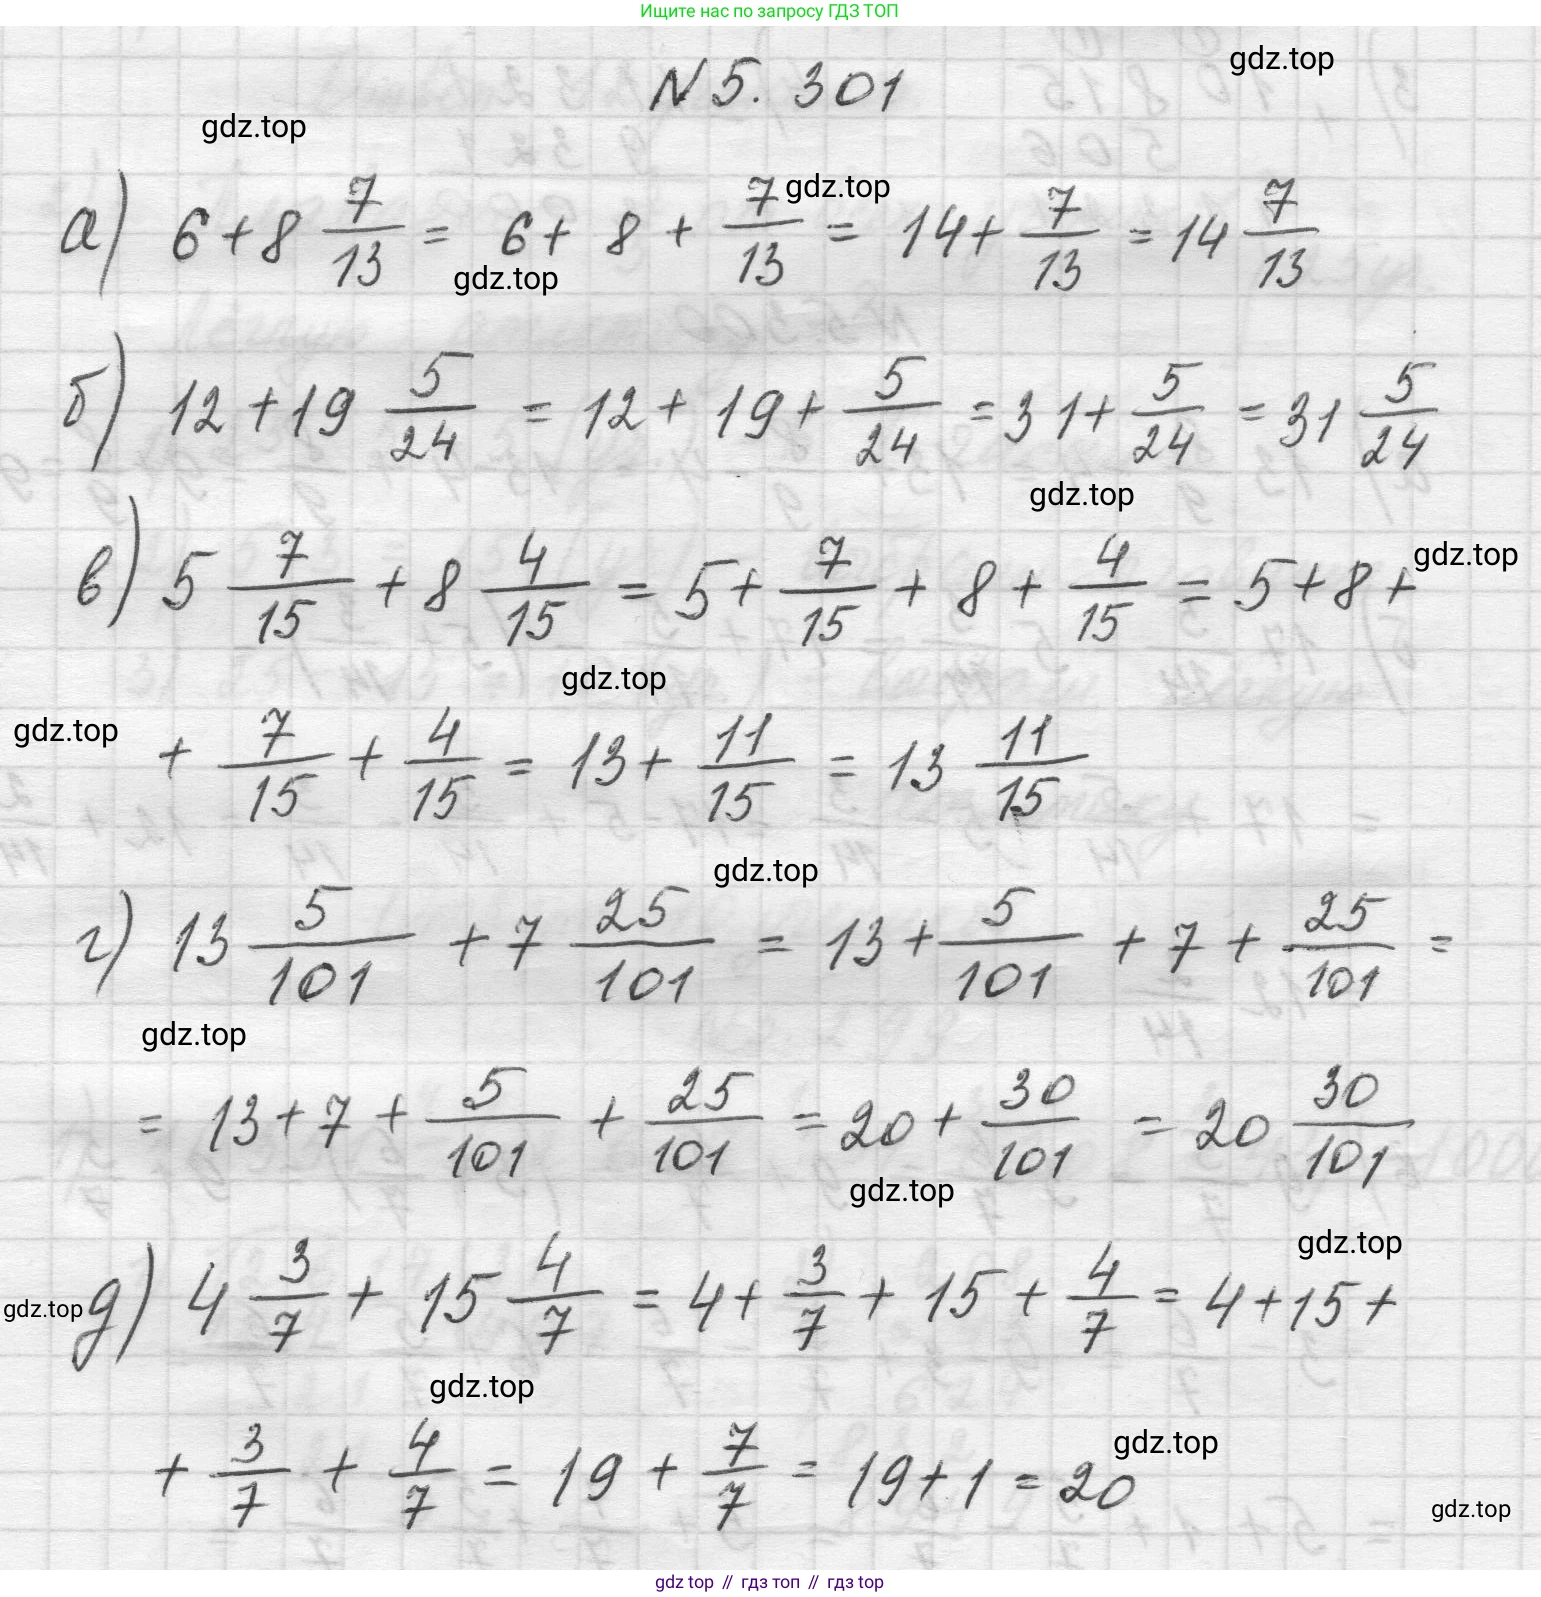 Ищите нас по запросу ГДЗ ТОП
N 5. 301
gdz.top
gdz.top
а) 6 + 8 7/13 = 6 + 8 + 7/13 = 14 + 7/13 = 14 7/13
gdz.top
gdz.top
б) 12 + 19 5/24 = 12 + 19 + 5/24 = 31 + 5/24 = 31 5/24
gdz.top
в) 5 7/15 + 8 4/15 = 5 + 7/15 + 8 + 4/15 = 5 + 8 +
gdz.top
gdz.top
gdz.top
+ 7/15 + 4/15 = 13 + 11/15 = 13 11/15
gdz.top
г) 13 5/101 + 7 25/101 = 13 + 5/101 + 7 + 25/101 =
gdz.top
= 13 + 7 + 5/101 + 25/101 = 20 + 30/101 = 20 30/101
gdz.top
gdz.top
gdz.top
д) 4 3/7 + 15 4/7 = 4 + 3/7 + 15 + 4/7 = 4 + 15 +
gdz.top
gdz.top
+ 3/7 + 4/7 = 19 + 7/7 = 19 + 1 = 20
gdz.top
gdz top // гдз топ // gdz top